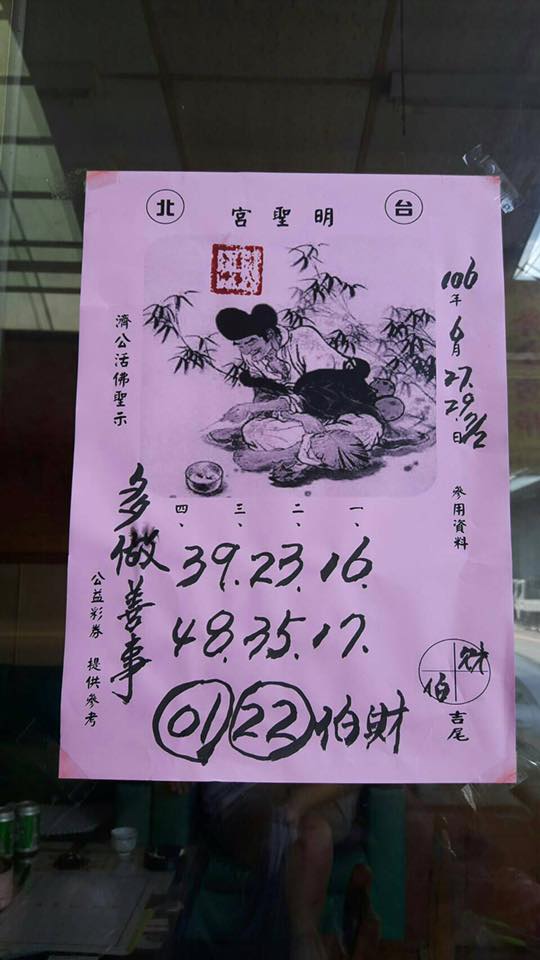 台北
明聖宮
106年6月27.29日
參用資料
財
伯
吉尾
一、二、三、四、
39.23.16.
48.35.17.
01 22 伯財
濟公活佛聖示
多做善事
公益彩券 提供參考